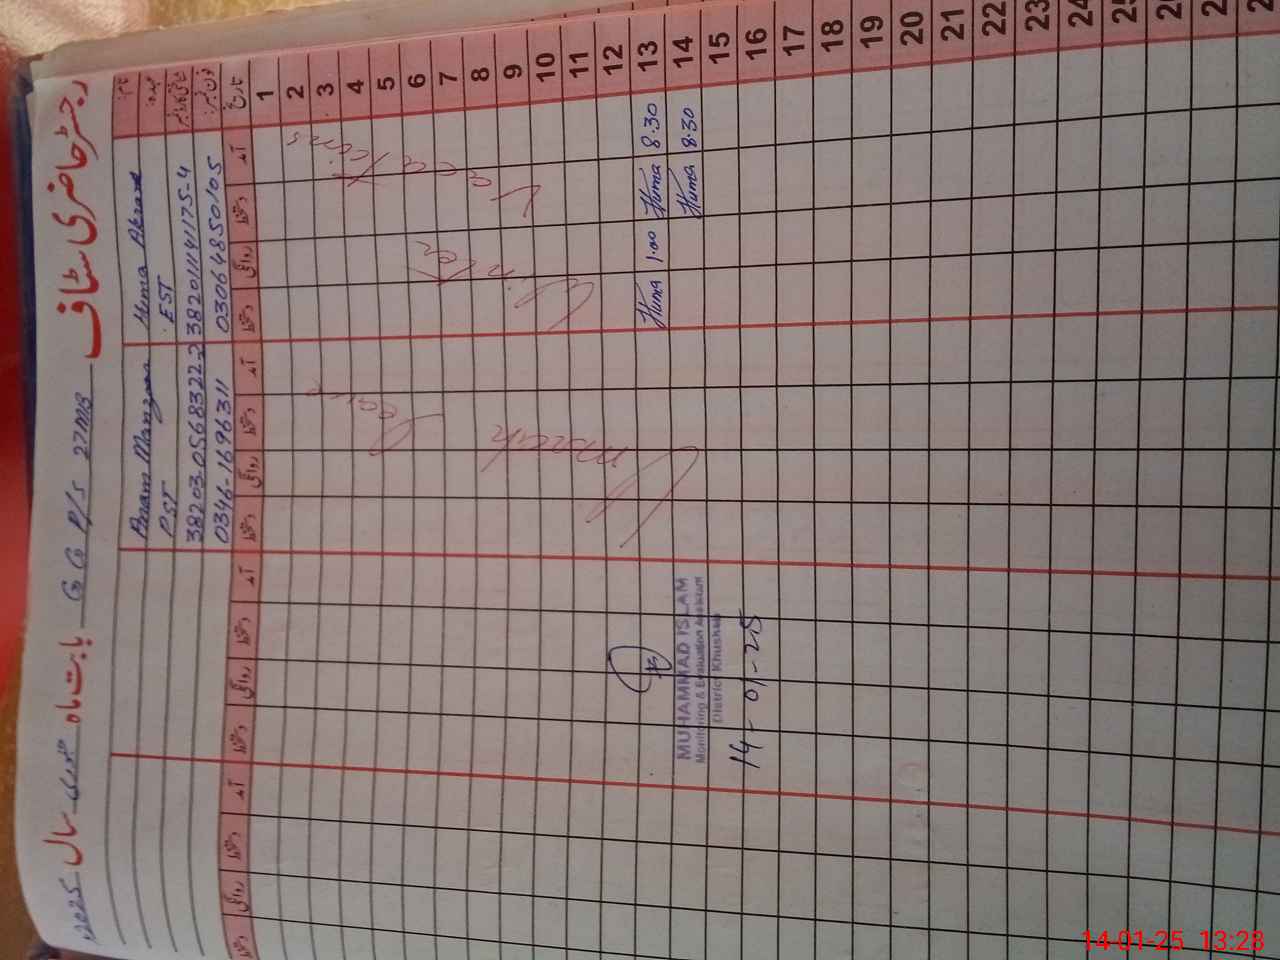 رجسٹر حاضری سٹاف G G P/S 27MB بابت ماہ جنوری سال 2025
نام
عہدہ
شناختی کارڈ نمبر
فون نمبر
تاریخ
Huma Akram
EST
38201-1141175-4
03064850105
PST
38203-0568322-2
0346-1696311
آمد دستخط روانگی دستخط آمد دستخط روانگی دستخط آمد دستخط روانگی دستخط آمد دستخط روانگی دستخط
1
2
3
4
5
6
7
8
9
10
11
12
13 8.30 Huma 1.00 Huma
14 8.30 Huma
15
16
17
18
19
20
21
22
23
24
Winter Vacations
Umrah Leave
MUHAMMAD ISLAM
Monitoring & Evaluation Assistant
District Khushab
14-01-25
14-01-25 13:28